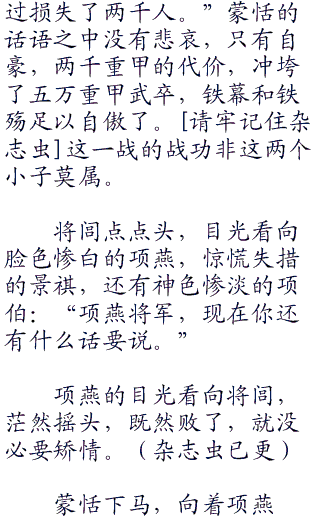 过损失了两千人。”蒙恬的
话语之中没有悲哀，只有自
豪，两千重甲的代价，冲垮
了五万重甲武卒，铁幕和铁
殇足以自傲了。[请牢记住杂
志虫]这一战的战功非这两个
小子莫属。
将闾点点头，目光看向
脸色惨白的项燕，惊慌失措
的景祺，还有神色惨淡的项
伯：“项燕将军，现在你还
有什么话要说。”
项燕的目光看向将闾，
茫然摇头，既然败了，就没
必要矫情。（杂志虫已更）
蒙恬下马，向着项燕